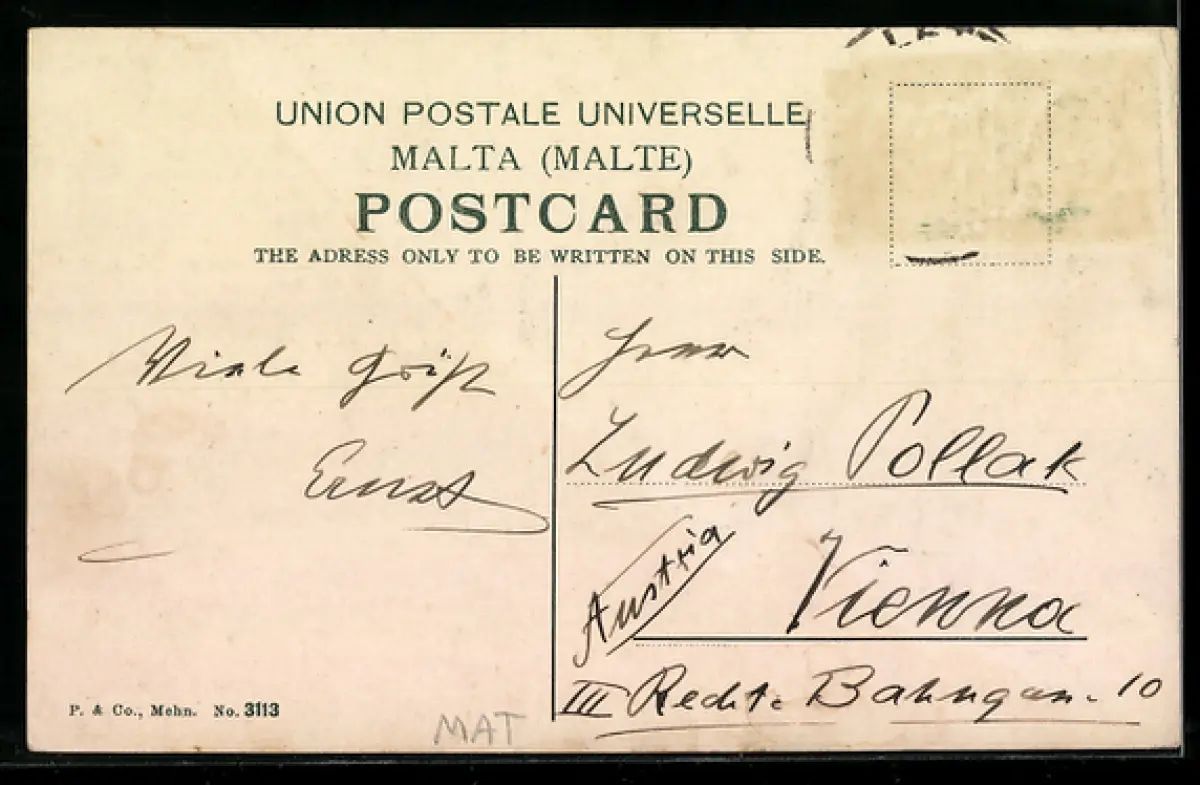 UNION POSTALE UNIVERSELLE
MALTA (MALTE)
POSTCARD
THE ADRESS ONLY TO BE WRITTEN ON THIS SIDE.
Viele Grüße
Ernst
Herrn
Ludwig Pollak
Austria
Vienna
III Rechte Bahngan. 10
P. & Co., Mehn. No. 3113
MAT